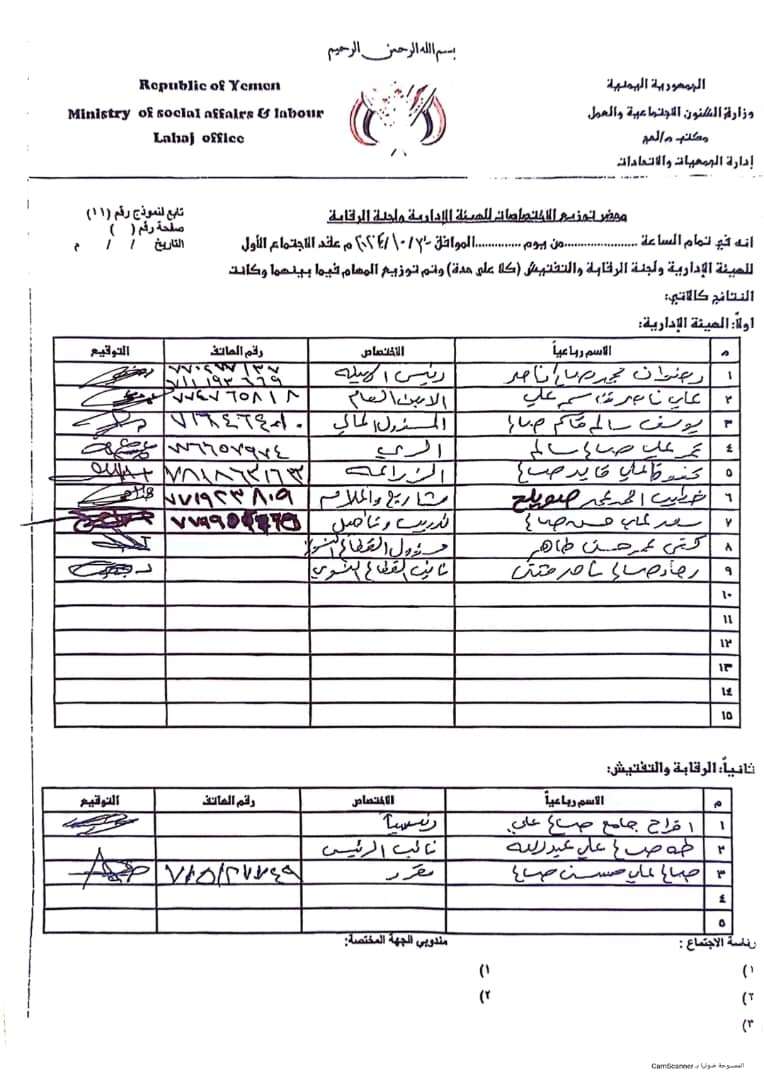 بسم الله الرحمن الرحيم
Republic of Yemen
Ministry of social affairs & labour
Lahaj office
الجمهورية اليمنية
وزارة الشئون الاجتماعية والعمل
مكتب م/لحج
إدارة الجمعيات والاتحادات
تابع لنموذج رقم (١١)
صفحة رقم ( )
التاريخ / / م
محضر توزيع الاختصاصات للهيئة الإدارية ولجنة الرقابة
انه في تمام الساعة ..................من يوم ..............الموافق ٣٠/١٠/٢٠٢٤ م عقد الاجتماع الأول
للهيئة الإدارية ولجنة الرقابة والتفتيش (كلا على حدة) وتم توزيع المهام فيما بينهما وكانت
النتائج كالاتي:
اولاً: الهيئة الإدارية:
م الاسم رباعياً الاختصاص رقم الهاتف التوقيع
١ رضوان محمد صالح ناصر رئيس الهيئة
٢ علي ناصر قاسم علي الامين العام ٧٧٤٧٦٥٨١٨
٣ يوسف سالم قاسم صالح المسؤول المالي
٤ علي صالح سالم الري ٧٧٦٦٥٧٩٧٤
٥ علي قايد صالح الزراعة ٧٨١٨٦٣١٦٣
٦ احمد محمد صويلح مشاريع ٧٧١٩٢٣٨٠٩
٧ سعد علي حسن صالح تدريب وتأهيل
٨ عمر حسن طاهر مسؤول القطاع النسوي
٩ صالح ناصر نائب القطاع النسوي
١٠
١١
١٢
١٣
١٤
١٥
ثانياً: الرقابة والتفتيش:
م الاسم رباعياً الاختصاص رقم الهاتف التوقيع
١ افراح جامع صالح علي رئيساً
٢ طه صالح علي عبدالله نائب الرئيس
٣ صالح علي حسن صالح مقرر
٤
٥
رئاسة الاجتماع : مندوبي الجهة المختصة:
١) ١)
٢) ٢)
٣)
الممسوحة ضوئيا بـ CamScanner